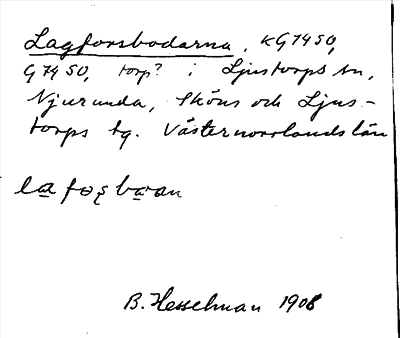 Lagforsbodarna, KG 74 SO,
G 74 SO, torp? i Ljustorps sn,
Njurunda, Sköns och Ljus-
torps tg. Västernorrlands län
B. Hesselman 1908